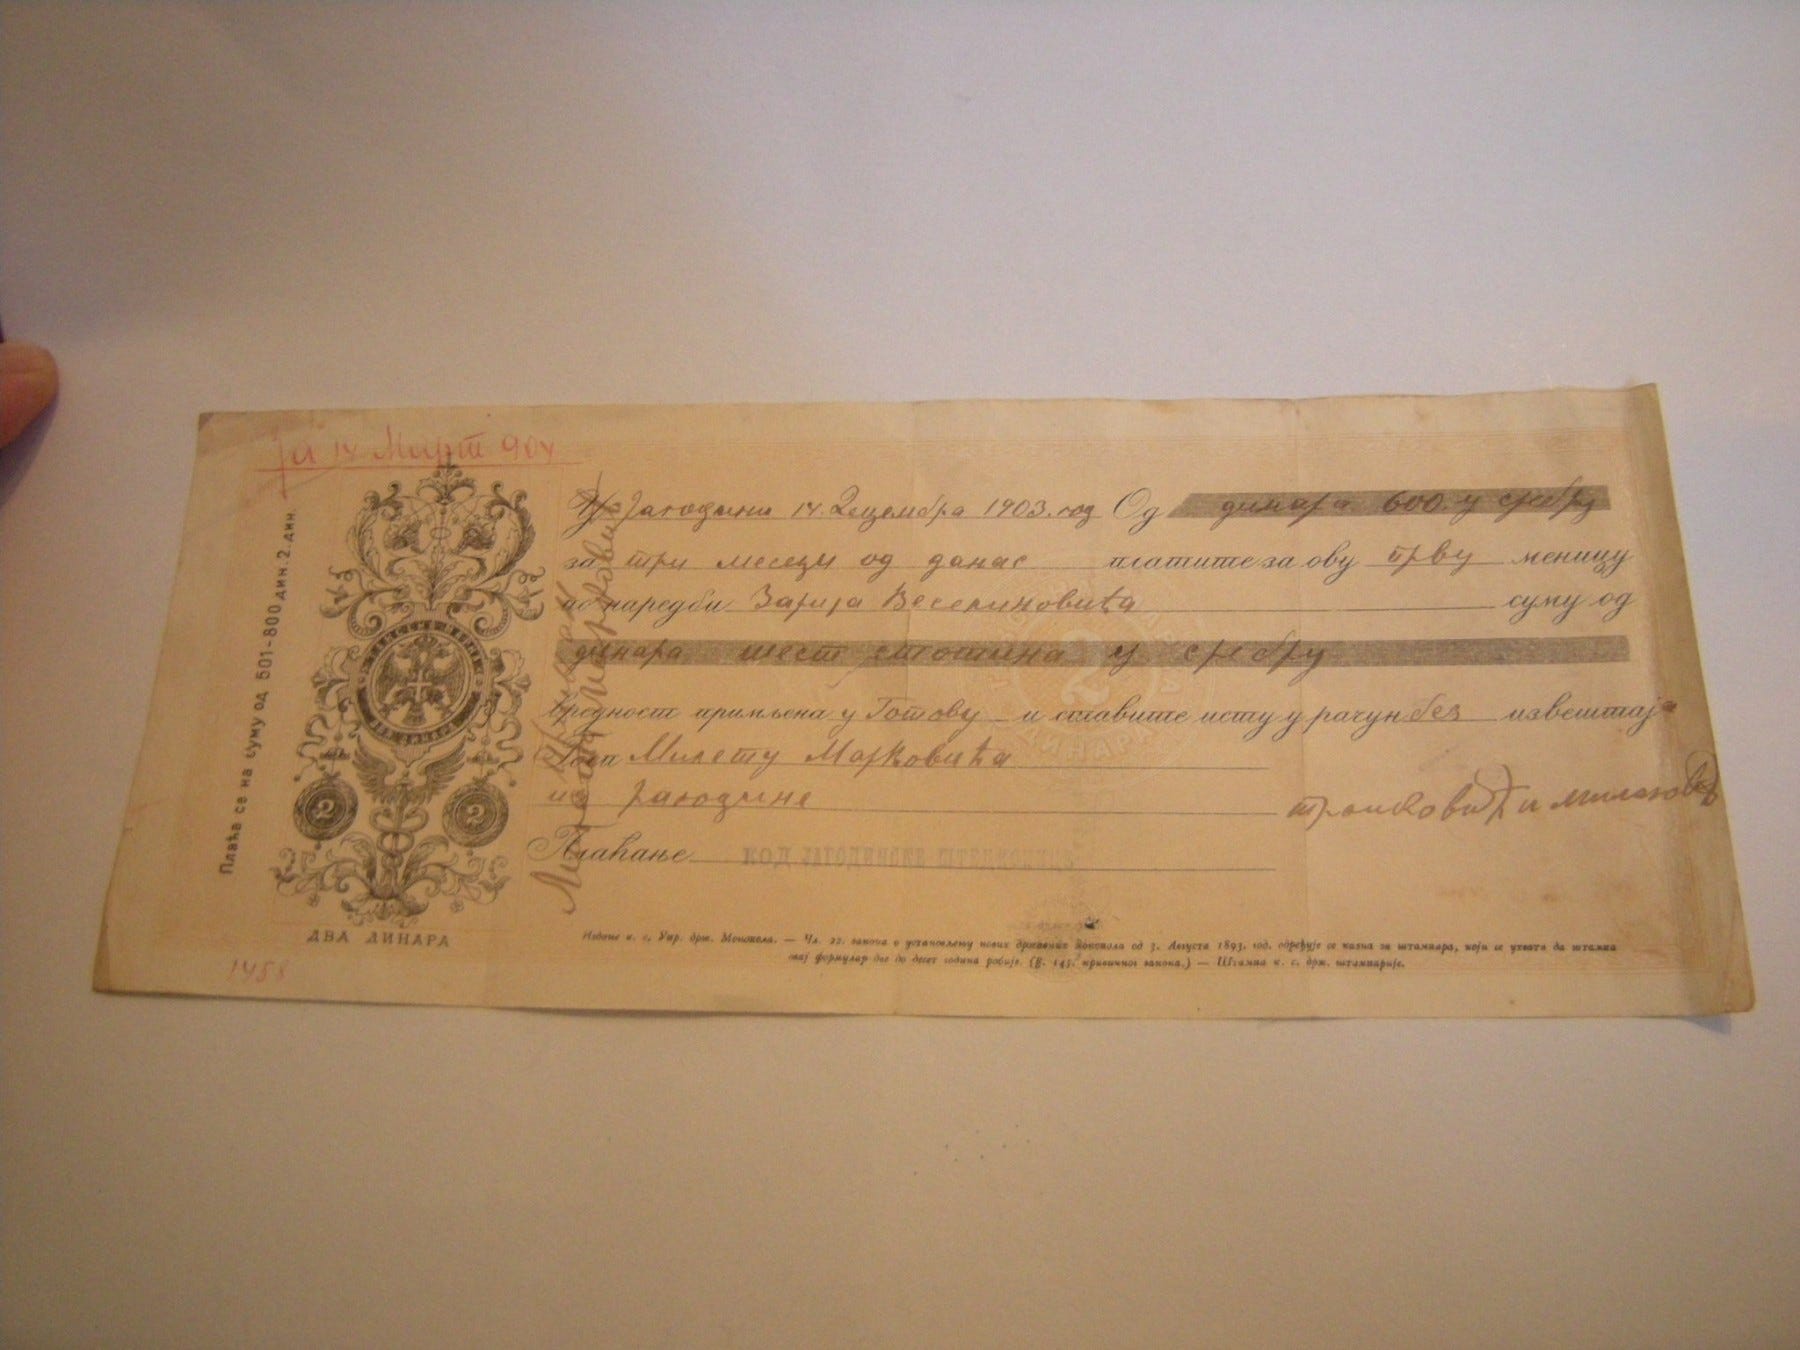 За 14 Март 904
Плаћа се на суму од 501-800 дин. 2. дин.
У Јагодини 14. Децембра 1903. год Од динара 600. у сребру
за три месеца од данас платите за ову прву меницу
по наредби Зарија Веселиновића суму од
динара шест стотина у сребру
вредност примљена у Готову и ставите исту у рачун без извештаја
Госп Милету Марковића
из Јагодине
Плаћање КОД ЈАГОДИНСКЕ ШТЕДИОНИЦЕ
2 2
ДВА ДИНАРА
Издање к. с. Упр. држ. Монопола. — Чл. 22. закона о установљењу нових државних монопола од 3. Августа 1893. год. одређује се казна за штампара, који се ухвати да штампа
овај формулар две до десет година робије. (§. 145. кривичног закона.) — Штампа к. с. држ. штампарије.
1458